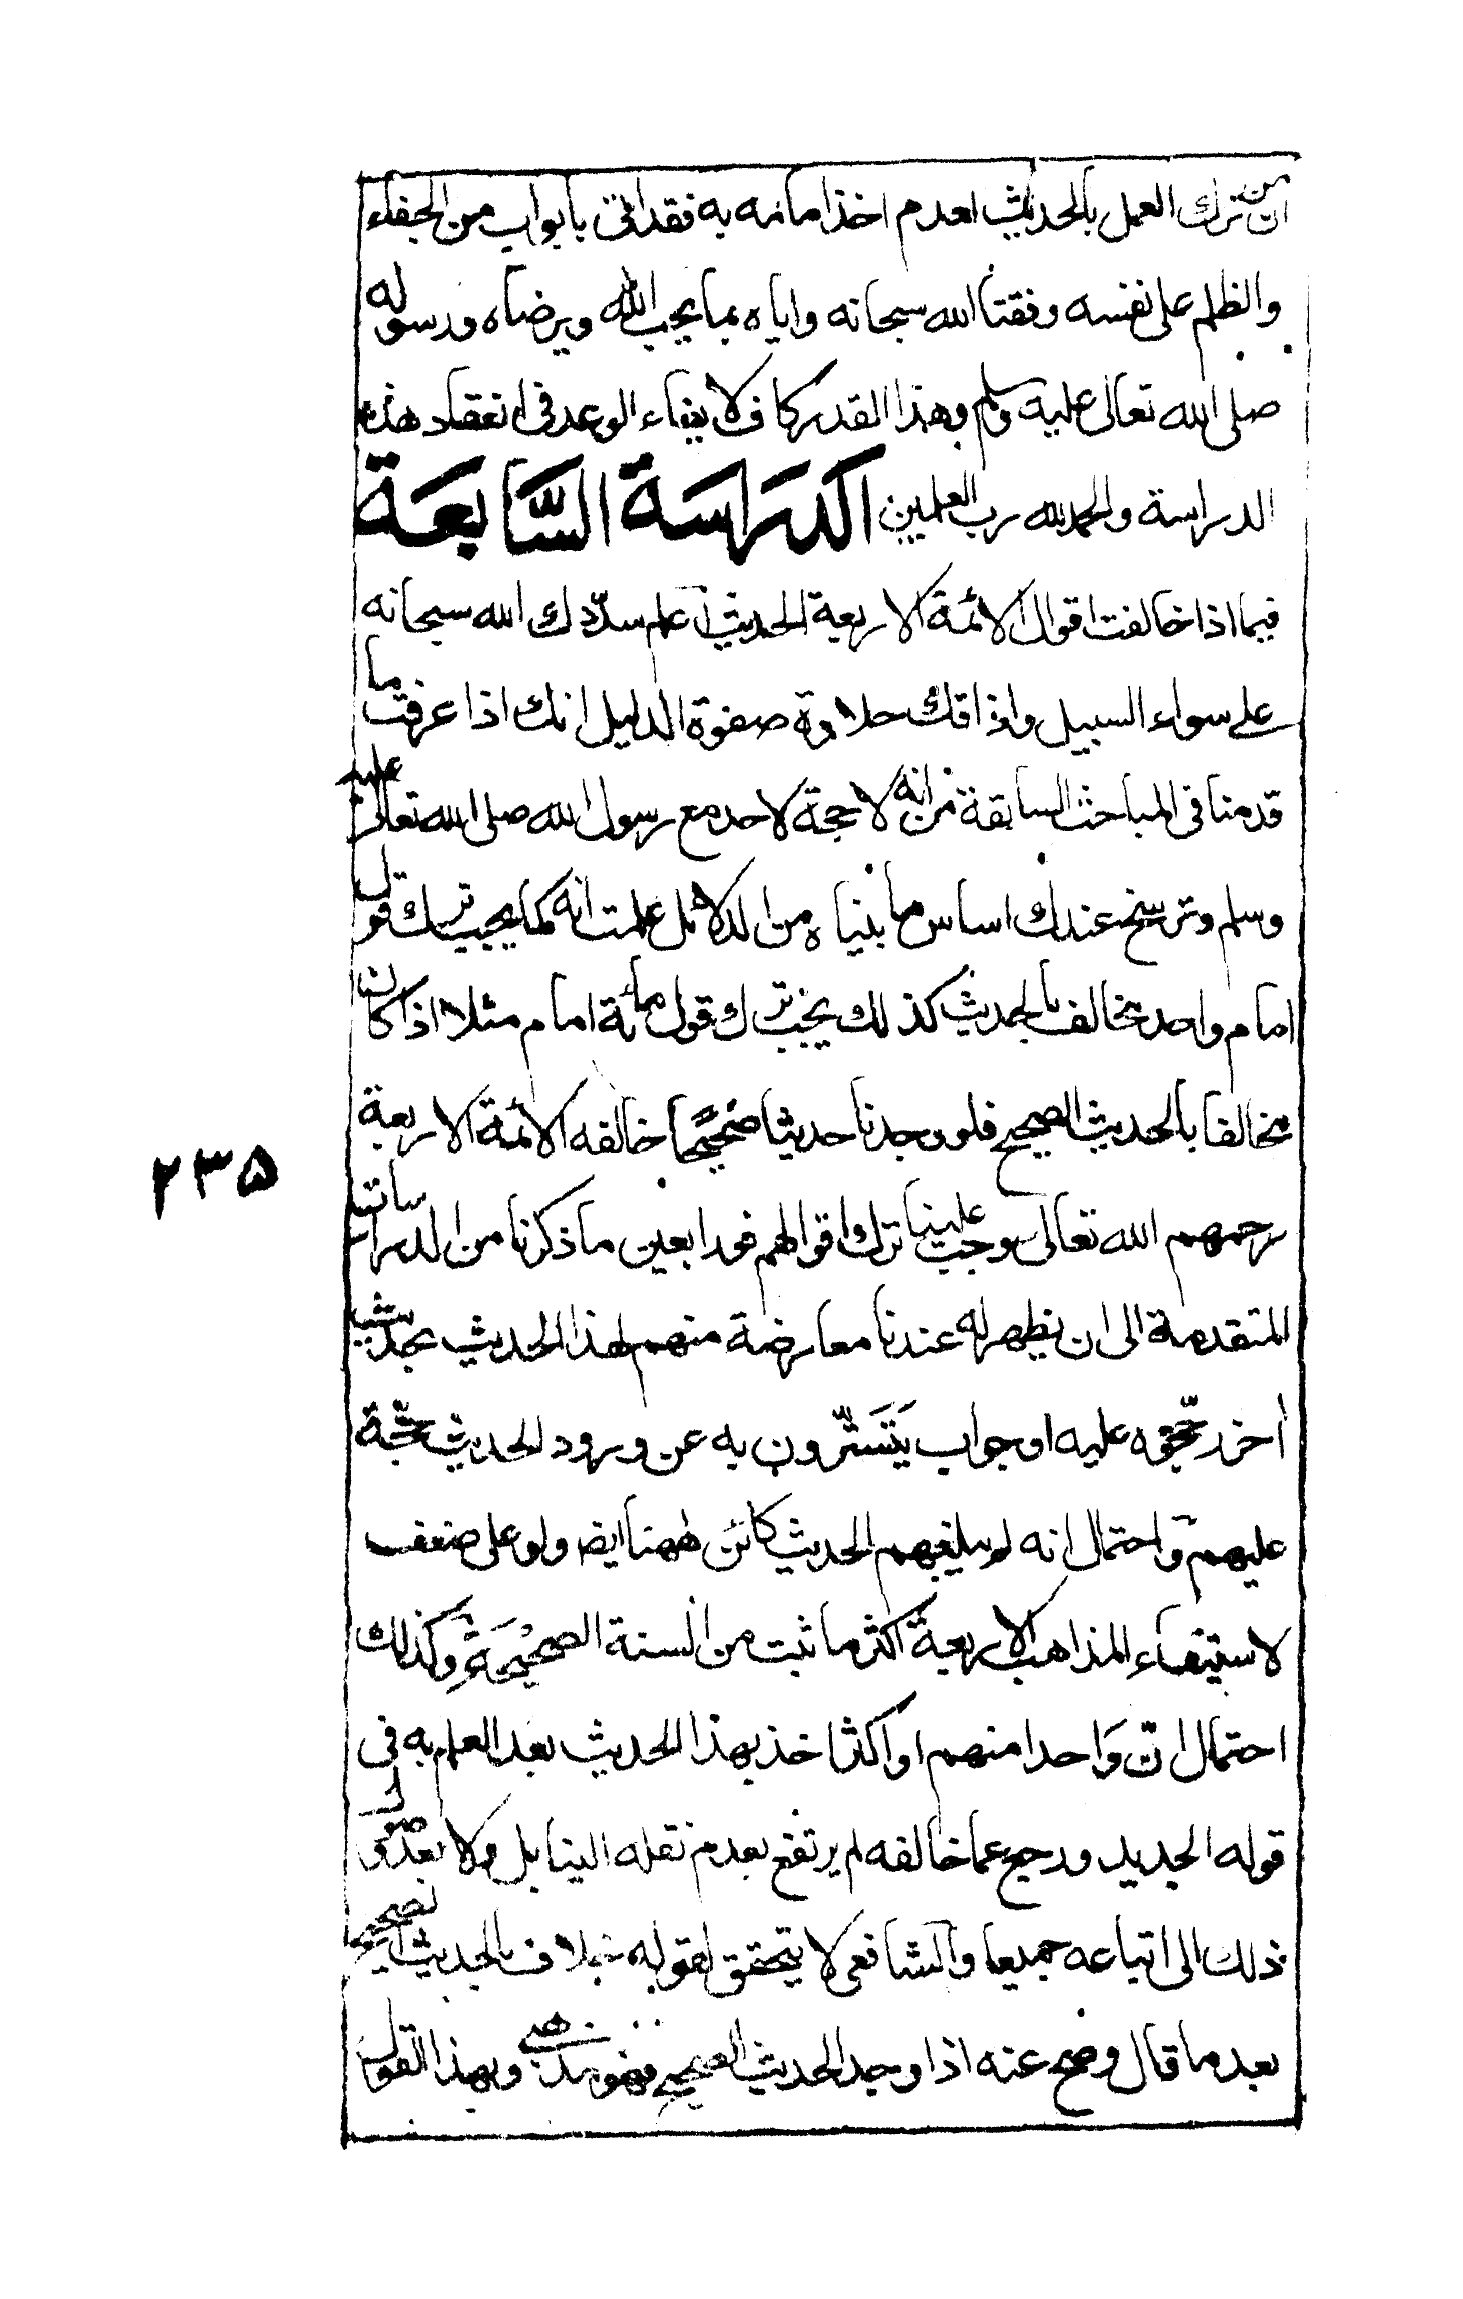 ان من ترك العمل بالحديث لعدم اخذ امامه به فقد اتى بابواب من الجفاء
والظلم على نفسه وفقنا الله سبحانه واياه بما يحب الله ويرضاه ورسوله
صلى الله تعالى عليه وسلم وهذا القدر كاف لايفاء الوعد فى انعقاد هذه
الدراسة والحمد لله رب العلمين الدَرَاسَة السَّابعَة
فيما اذا خالفت اقوال الائمة الاربعة الحديث اعلم سدّدك الله سبحانه
على سواء السبيل واذاقك حلاوة صفوة الدليل انك اذا عرفت ما
قدمنا فى المباحث السابقة من انه لا حجة لاحد مع رسول الله صلى الله تعالى عليه
وسلم وترسخ عندك اساس ما بنياه من الدلائل علمت انه كما يجب ترك قول
امام واحد مخالف بالحديث كذلك يجب ترك قول مائة امام مثلا اذا كان
مخالفا بالحديث الصحيح فلو وجدنا حديثا صحيحًا خالفه الائمة الاربعة
رحمهم الله تعالى سوجب علينا ترك اقوالهم فورا بعين ما ذكرنا من الدراسات
المتقدمة الى ان يظهر له عندنا معارضة منهم لهذا الحديث بحديث
أخر عليه او جواب يَتَسَتّرون به عن ورود الحديث حجّة
عليهم واحتمال انه لم يبلغهم الحديث كائن ههنا ايض ولو على ضعف
لاستيفاء المذاهب الاربعة اكثر ما ثبت من السنة الصحيْحَةِ وكذلك
احتمال انّ وَاحدا منهم او اكثر اخذ بهذا الحديث بعد العلم به فى
قوله الجديد ورجع عما خالفه لم يرتفع بعدم نقله الينا بل ولا بعد
ذلك الى اتباعه جميعا والشافعى لا يتحقق لقوله خلاف بالحديث الصحيح
بعد ما قال وصح عنه اذا وجد الحديث الصحيح فهو مذهبى وبهذا القول
٢٣٥